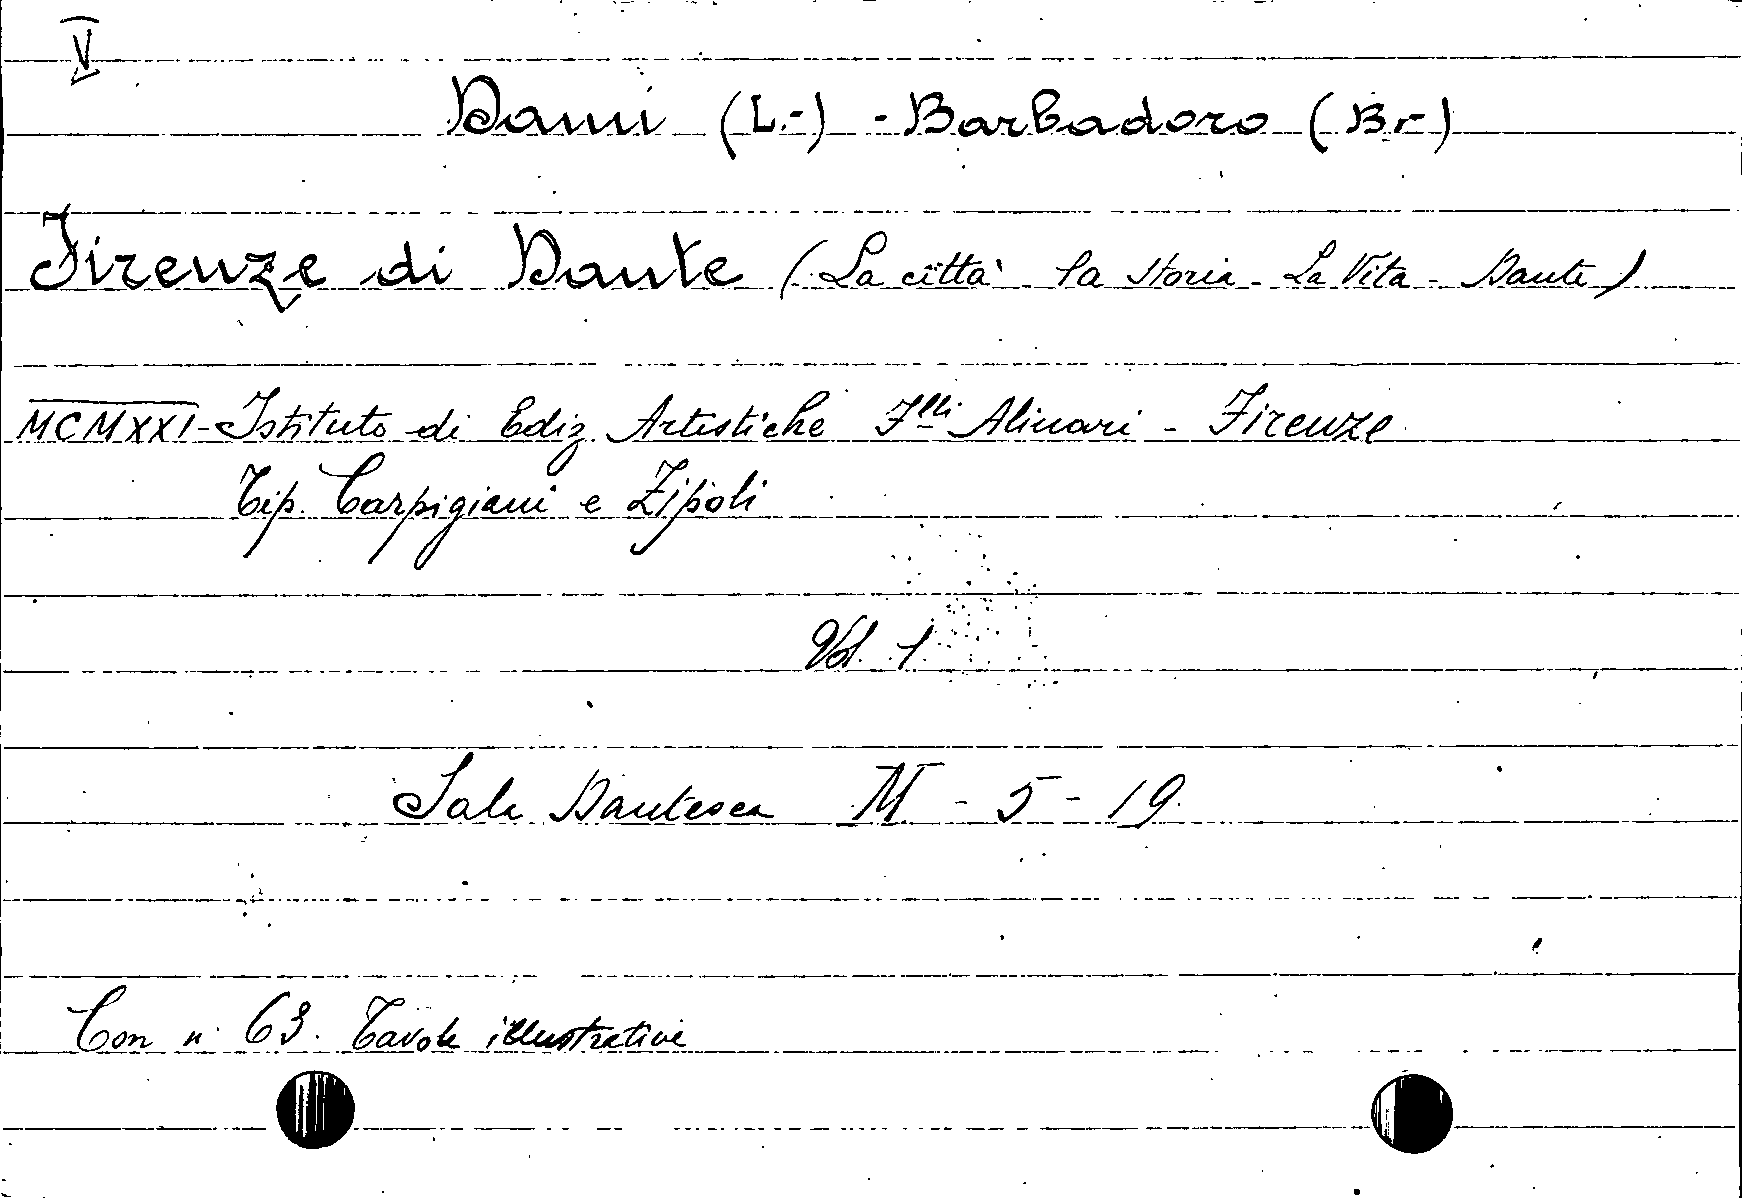 V
Dami (L.-) - Barbadoro (Br-)
Firenze di Dante (La città la Storia - La Vita - Dante)
MCMXXI - Istituto di Ediz. Artistiche Flli Alinari - Firenze
Tip. Carpigiani e Zipoli
Vol. 1
Sala Dantesca M - 5 - 19
Con n. 63. Tavole illustrative